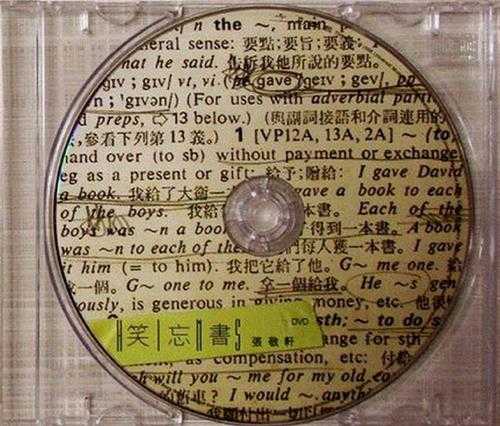 n the ~, main
neral sense: 要點;要旨;要義;
hat he said. 告訴我他所說的要點。
gɪv ; gɪv/ vt, vi. gave /geɪv ; gev/,
n ; 'gɪvən/) (For uses with adverbial
preps, ⇨13 below.) (與副詞接語和介詞連用的
,參看下列第 13 義。) 1 [VP12A, 13A, 2A] ~ (to,
hand over (to sb) without payment or exchange
eg as a present or gift: 給予;贈給: I gave David
a book. 我給了大衛一 gave a book to each
of the boys. 我給 本書。 Each of the
boys was ~n a book 得到一本書。 A book
was ~n to each of the 們每人獲一本書。 I gave
it him (= to him). 我把它給了他。 G~ me one. 給
一個。 G~ one to me. 拿一個給我。 He ~s
ously, is generous in giving money, etc. 他很
sth; ~ to do s
change for sth
as compensation, etc: 付給
will you ~ me for my old
車? I would ~
笑 忘 書 DVD
張敬軒